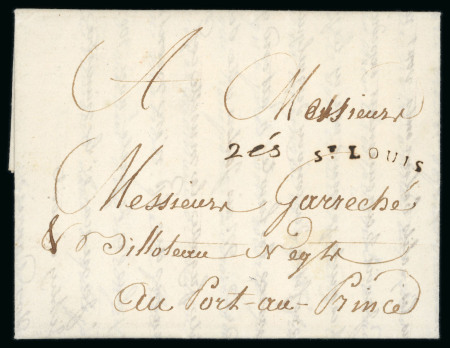 A Messieurs
2és ST LOUIS
Messieurs Garreché
& Billoteau Negts
Au Port-au-Prince